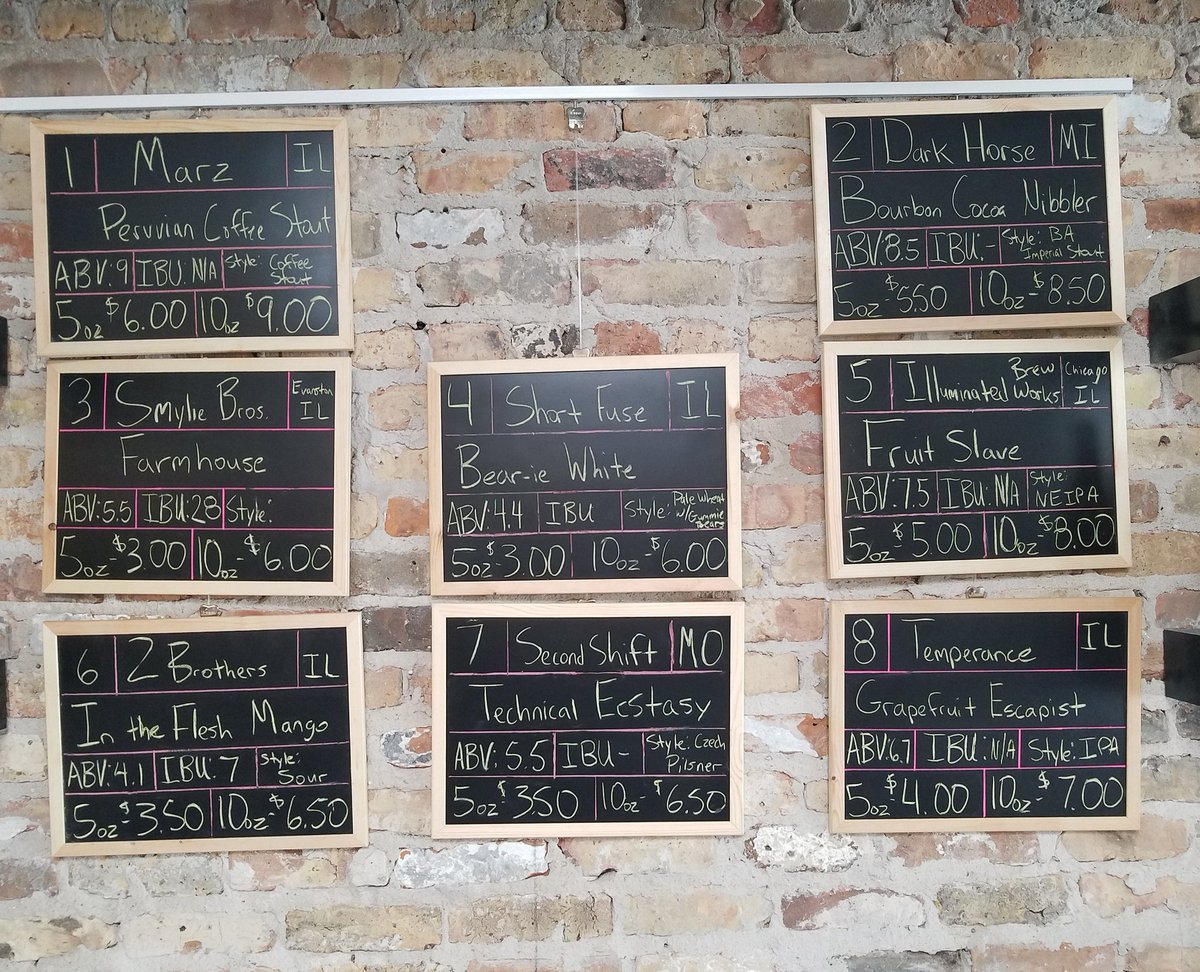 1 Marz IL
Peruvian Coffee Stout
ABV: 9 IBU: N/A Style: Coffee
Stout
5oz-$6.00 10oz-$9.00
2 Dark Horse MI
Bourbon Cocoa Nibbler
ABV: 8.5 IBU: - Style: BA
Imperial Stout
5oz-$5.50 10oz-$8.50
3 Smylie Bros. Evanston
IL
Farmhouse
ABV: 5.5 IBU: 28 Style:
5oz-$3.00 10oz-$6.00
4 Short Fuse IL
Bear-ie White
ABV: 4.4 IBU Style: Pale Wheat
w/Gummie
Bears
5oz-$3.00 10oz-$6.00
5 Illuminated Brew
Works Chicago
IL
Fruit Slave
ABV: 7.5 IBU: N/A Style:
NEIPA
5oz-$5.00 10oz-$8.00
6 2 Brothers IL
In the Flesh Mango
ABV: 4.1 IBU: 7 Style:
Sour
5oz-$3.50 10oz-$6.50
7 Second Shift MO
Technical Ecstasy
ABV: 5.5 IBU - Style: Czech
Pilsner
5oz-$3.50 10oz-$6.50
8 Temperance IL
Grapefruit Escapist
ABV: 6.7 IBU: N/A Style: IPA
5oz-$4.00 10oz-$7.00